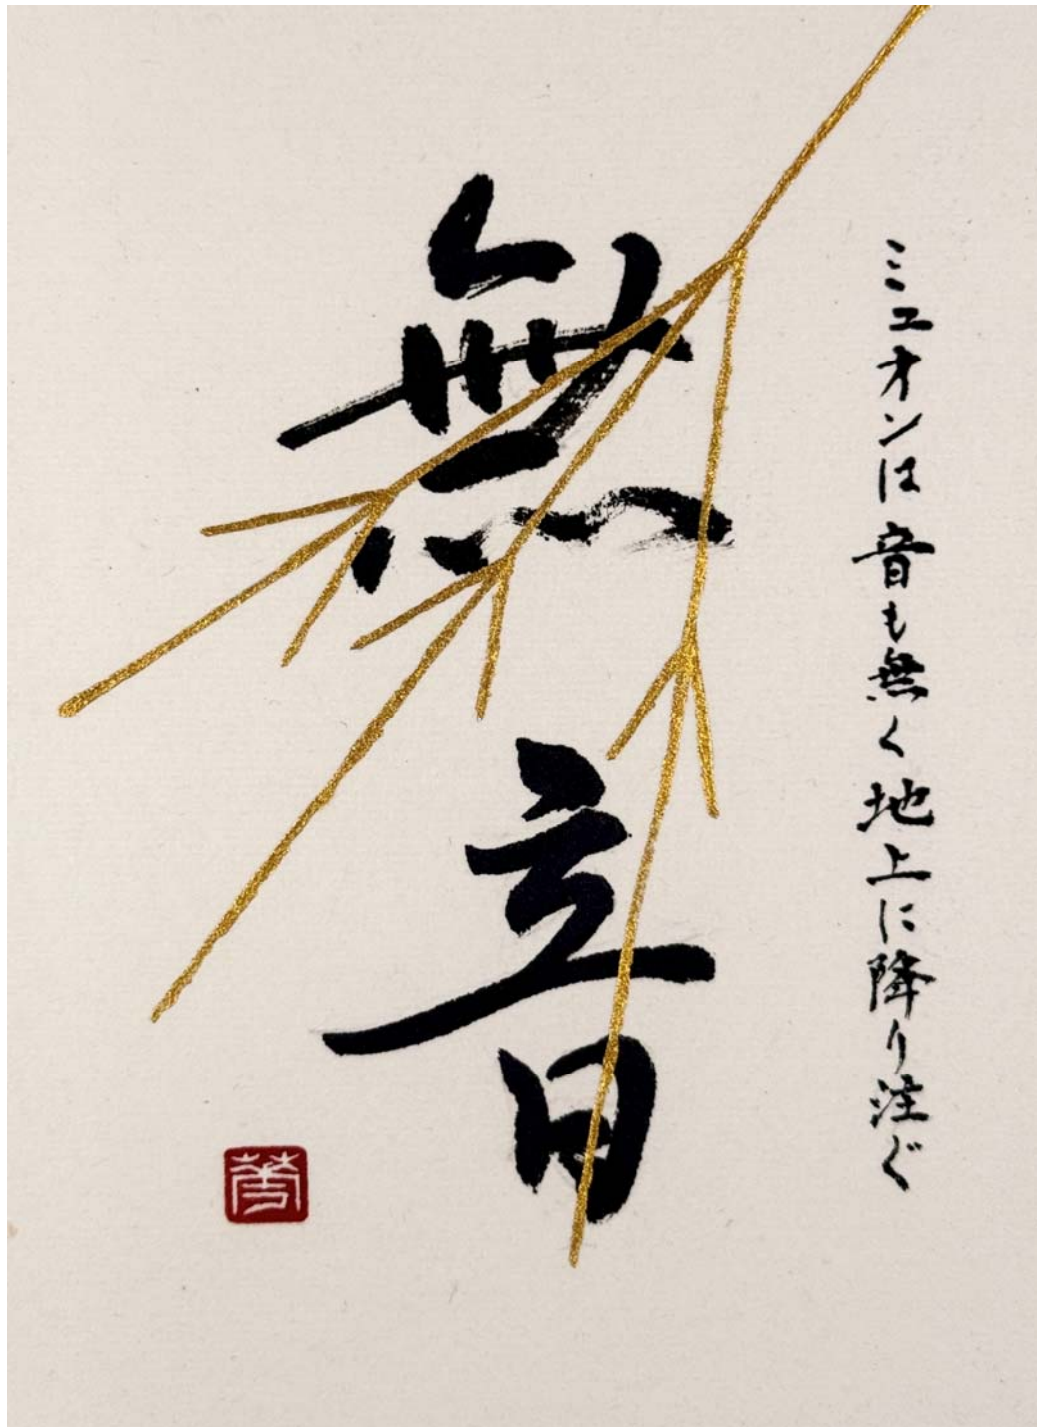 ミュオンは音も無く地上に降り注ぐ
無音